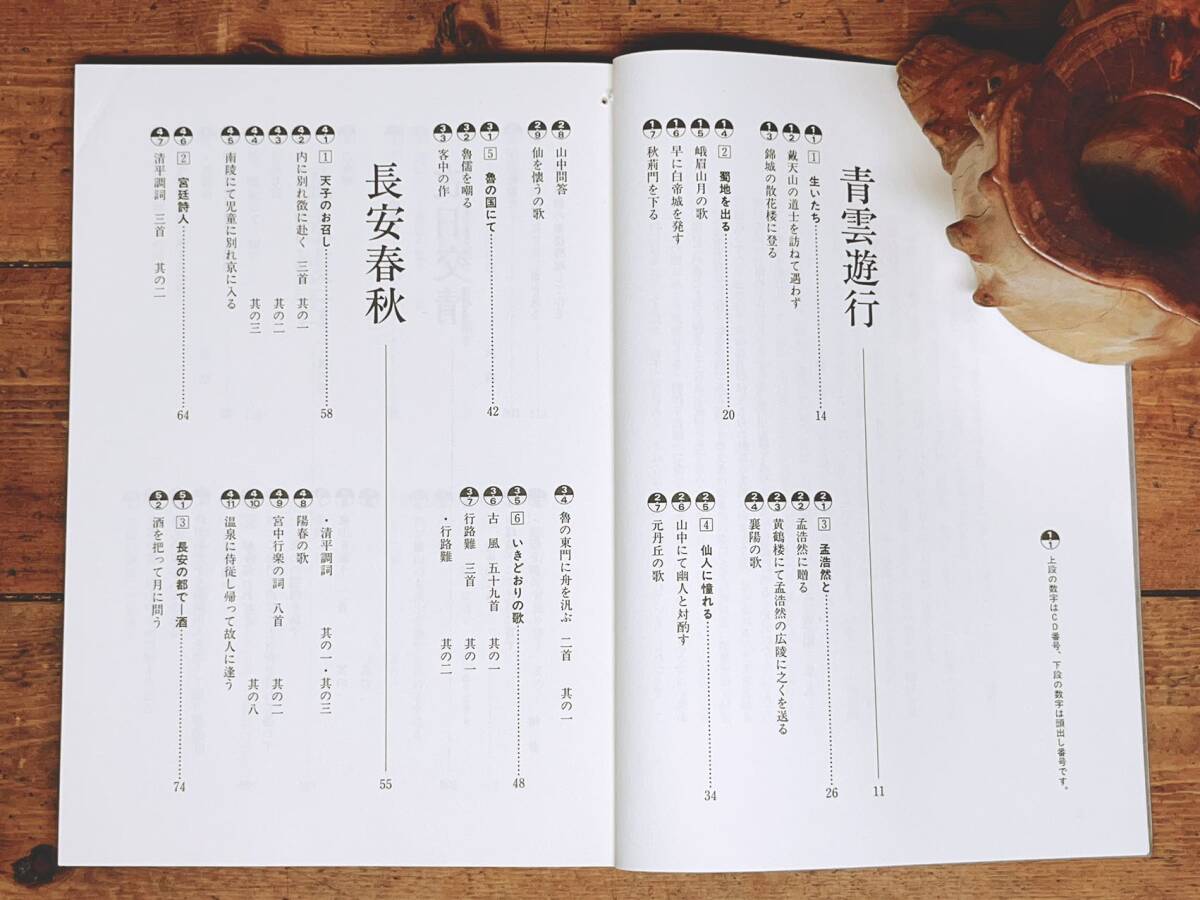 1/1 上段の数字はCD番号、下段の数字は頭出し番号です。
青雲遊行 11
1/1 1 生いたち 14
1/2 戴天山の道士を訪ねて遇わず
1/3 錦城の散花楼に登る
1/4 2 蜀地を出る 20
1/5 峨眉山月の歌
1/6 早に白帝城を発す
1/7 秋荊門を下る
2/1 3 孟浩然と 26
2/2 孟浩然に贈る
2/3 黄鶴楼にて孟浩然の広陵に之くを送る
2/4 襄陽の歌
2/5 4 仙人に憧れる 34
2/6 山中にて幽人と対酌す
2/7 元丹丘の歌
2/8 山中問答
2/9 仙を懐うの歌
3/1 5 魯の国にて 42
3/2 魯儒を嘲る
3/3 客中の作
3/4 魯の東門に舟を汎ぶ 二首 其の一
3/5 6 いきどおりの歌 48
3/6 古風 五十九首 其の一
3/7 行路難 三首 其の一
・行路難 其の二
長安春秋 55
4/1 1 天子のお召し 58
4/2 内に別れ徴に赴く 三首 其の一
4/3 其の二
4/4 其の三
4/5 南陵にて児童に別れ京に入る
4/6 2 宮廷詩人 64
4/7 清平調詞 三首 其の二
・清平調詞 其の一・其の三
4/8 陽春の歌
4/9 宮中行楽の詞 八首 其の二
4/10 其の八
4/11 温泉に侍従し帰って故人に逢う
5/1 3 長安の都で―酒 74
5/2 酒を把って月に問う